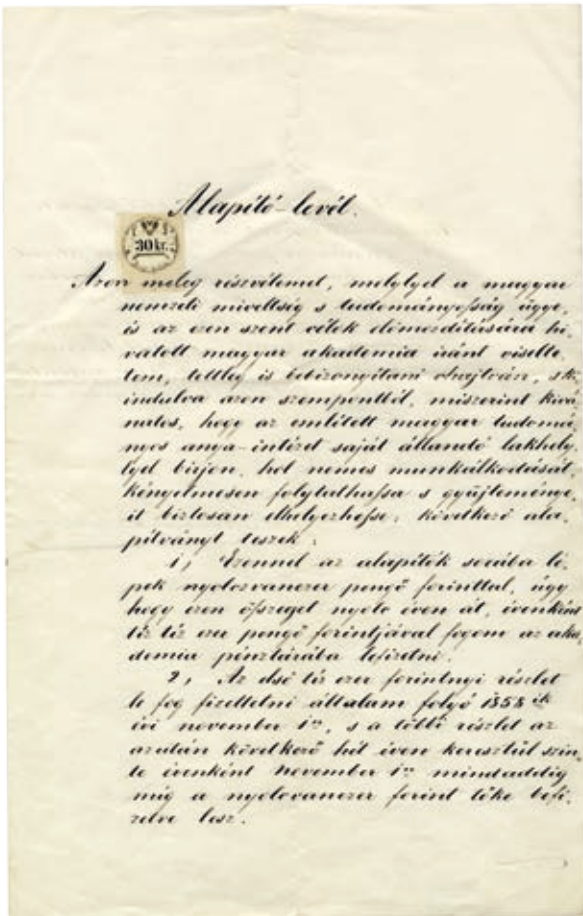 Alapitó-levél.
30 kr.
Azon meleg részvétemet, melylyel a magyar
nemzeti miveltség s tudományosság ügye,
és az ezen szent czélok előmozdítására hi-
vatott magyar akademia iránt viselte-
tem, tettleg is bebizonyítani ohajtván, s ki-
indulva azon szempontból, miszerint kivá-
natos, hogy az említett magyar tudomá-
nyos anya-intézet saját állandó lakhely-
lyel birjon, hol nemes munkálkodását
kényelmesen folytathassa s gyüjteménye-
it biztosan elhelyezhesse, következő ala-
pítványt teszek:
1, Ezennel az alapítók sorába lé-
pek nyolczvanezer pengő forinttal, úgy
hogy ezen összeget nyolcz éven át, évenként
tíz tíz ezer pengő forintjával fogom az aka-
demia pénztárába lefizetni.
2, Az első tíz ezer forintnyi részlet
le fog fizettetni általam folyó 1858 ik
évi november 1én, s a többi részlet az
azután következő hét éven keresztül szin-
te évenként November 1én mindaddig
míg a nyolczvanezer forint tőke befi-
zetve lesz.